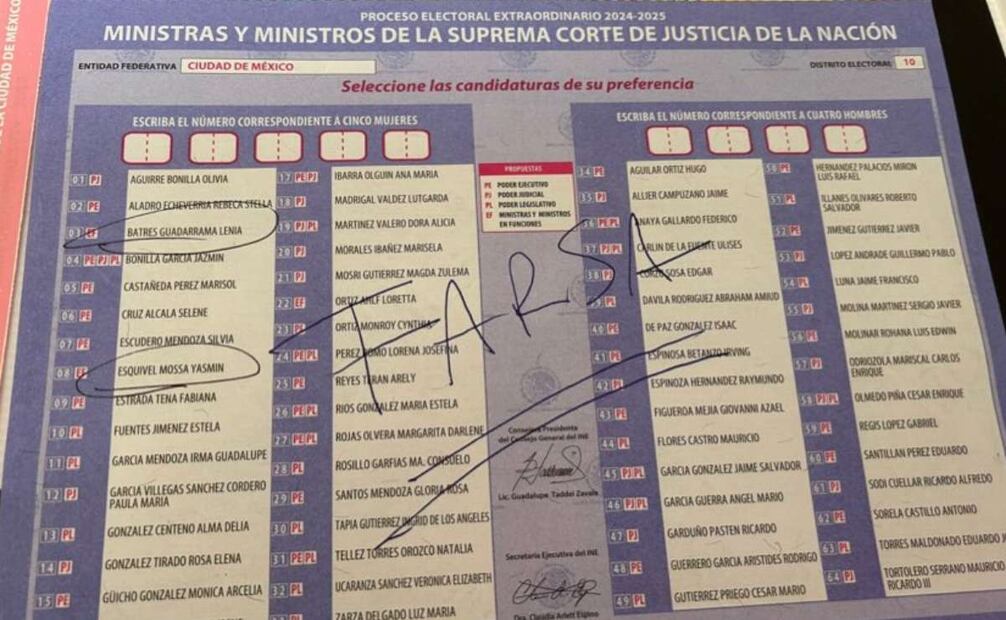 LA CIUDAD DE MÉXICO
PROCESO ELECTORAL EXTRAORDINARIO 2024-2025
MINISTRAS Y MINISTROS DE LA SUPREMA CORTE DE JUSTICIA DE LA NACIÓN
ENTIDAD FEDERATIVA CIUDAD DE MÉXICO
DISTRITO ELECTORAL 10
Seleccione las candidaturas de su preferencia
ESCRIBA EL NÚMERO CORRESPONDIENTE A CINCO MUJERES
01 PJ AGUIRRE BONILLA OLIVIA
02 PE ALADRO ECHEVERRIA REBECA STELLA
03 EF BATRES GUADARRAMA LENIA
04 PE PJ PL BONILLA GARCIA JAZMIN
05 PE CASTAÑEDA PEREZ MARISOL
06 PE CRUZ ALCALA SELENE
07 PE ESCUDERO MENDOZA SILVIA
08 EF ESQUIVEL MOSSA YASMIN
09 PE ESTRADA TENA FABIANA
10 PL FUENTES JIMENEZ ESTELA
11 PL GARCIA MENDOZA IRMA GUADALUPE
12 PJ GARCIA VILLEGAS SANCHEZ CORDERO
PAULA MARIA
13 PL GONZALEZ CENTENO ALMA DELIA
14 PJ GONZALEZ TIRADO ROSA ELENA
15 PE GÜICHO GONZALEZ MONICA ARCELIA
17 PE PJ IBARRA OLGUIN ANA MARIA
18 PJ MADRIGAL VALDEZ LUTGARDA
19 PJ PL MARTINEZ VALERO DORA ALICIA
20 PJ MORALES IBAÑEZ MARISELA
21 PJ MOSRI GUTIERREZ MAGDA ZULEMA
22 EF ORTIZ AHLF LORETTA
23 PL ORTIZ MONROY CYNTHIA
24 PE PL PEREZ ROMO LORENA JOSEFINA
25 PE REYES TERAN ARELY
26 PE PL RIOS GONZALEZ MARIA ESTELA
27 PE PL ROJAS OLVERA MARGARITA DARLENE
28 PL ROSILLO GARFIAS MA. CONSUELO
29 PE SANTOS MENDOZA GLORIA ROSA
30 PL TAPIA GUTIERREZ INGRID DE LOS ANGELES
31 PE PL TELLEZ TORRES OROZCO NATALIA
32 PL UCARANZA SANCHEZ VERONICA ELIZABETH
ZARZA DELGADO LUZ MARIA
PROPUESTAS
PE PODER EJECUTIVO
PJ PODER JUDICIAL
PL PODER LEGISLATIVO
EF MINISTRAS Y MINISTROS
EN FUNCIONES
FARSA
Consejera Presidenta
del Consejo General del INE
Lic. Guadalupe Taddei Zavala
Secretaria Ejecutiva del INE
Dra. Claudia Arlett Espino
ESCRIBA EL NÚMERO CORRESPONDIENTE A CUATRO HOMBRES
34 PE AGUILAR ORTIZ HUGO
35 PJ ALLIER CAMPUZANO JAIME
36 PE PL ANAYA GALLARDO FEDERICO
37 PJ PL CARLIN DE LA FUENTE ULISES
38 PJ CORZO SOSA EDGAR
39 PL DAVILA RODRIGUEZ ABRAHAM AMIUD
40 PE DE PAZ GONZALEZ ISAAC
41 PL ESPINOSA BETANZO IRVING
42 PL ESPINOZA HERNANDEZ RAYMUNDO
43 PE FIGUEROA MEJIA GIOVANNI AZAEL
44 PL FLORES CASTRO MAURICIO
45 PJ PL GARCIA GONZALEZ JAIME SALVADOR
46 PJ PL GARCIA GUERRA ANGEL MARIO
47 PJ GARDUÑO PASTEN RICARDO
48 PE GUERRERO GARCIA ARISTIDES RODRIGO
49 PL GUTIERREZ PRIEGO CESAR MARIO
50 PE HERNANDEZ PALACIOS MIRON
LUIS RAFAEL
51 PL ILLANES OLIVARES ROBERTO
SALVADOR
52 PE JIMENEZ GUTIERREZ JAVIER
53 PJ LOPEZ ANDRADE GUILLERMO PABLO
54 PL LUNA JAIME FRANCISCO
55 PJ MOLINA MARTINEZ SERGIO JAVIER
56 PE MOLINAR ROHANA LUIS EDWIN
57 PJ ODRIOZOLA MARISCAL CARLOS
ENRIQUE
58 PJ PL OLMEDO PIÑA CESAR ENRIQUE
59 PE REGIS LOPEZ GABRIEL
60 PE SANTILLAN PEREZ EDUARDO
61 PJ SODI CUELLAR RICARDO ALFREDO
62 PE SORELA CASTILLO ANTONIO
63 PL TORRES MALDONADO EDUARDO
64 PJ TORTOLERO SERRANO MAURICIO
RICARDO III